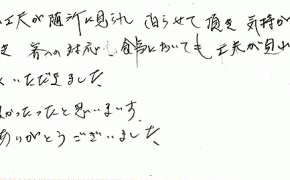 工夫が随所に見られ 泊らせて頂き 気持が
き 客への対応も 食事においても 工夫が見れ
いただきました
よかったったと思います。
ありがとうございました